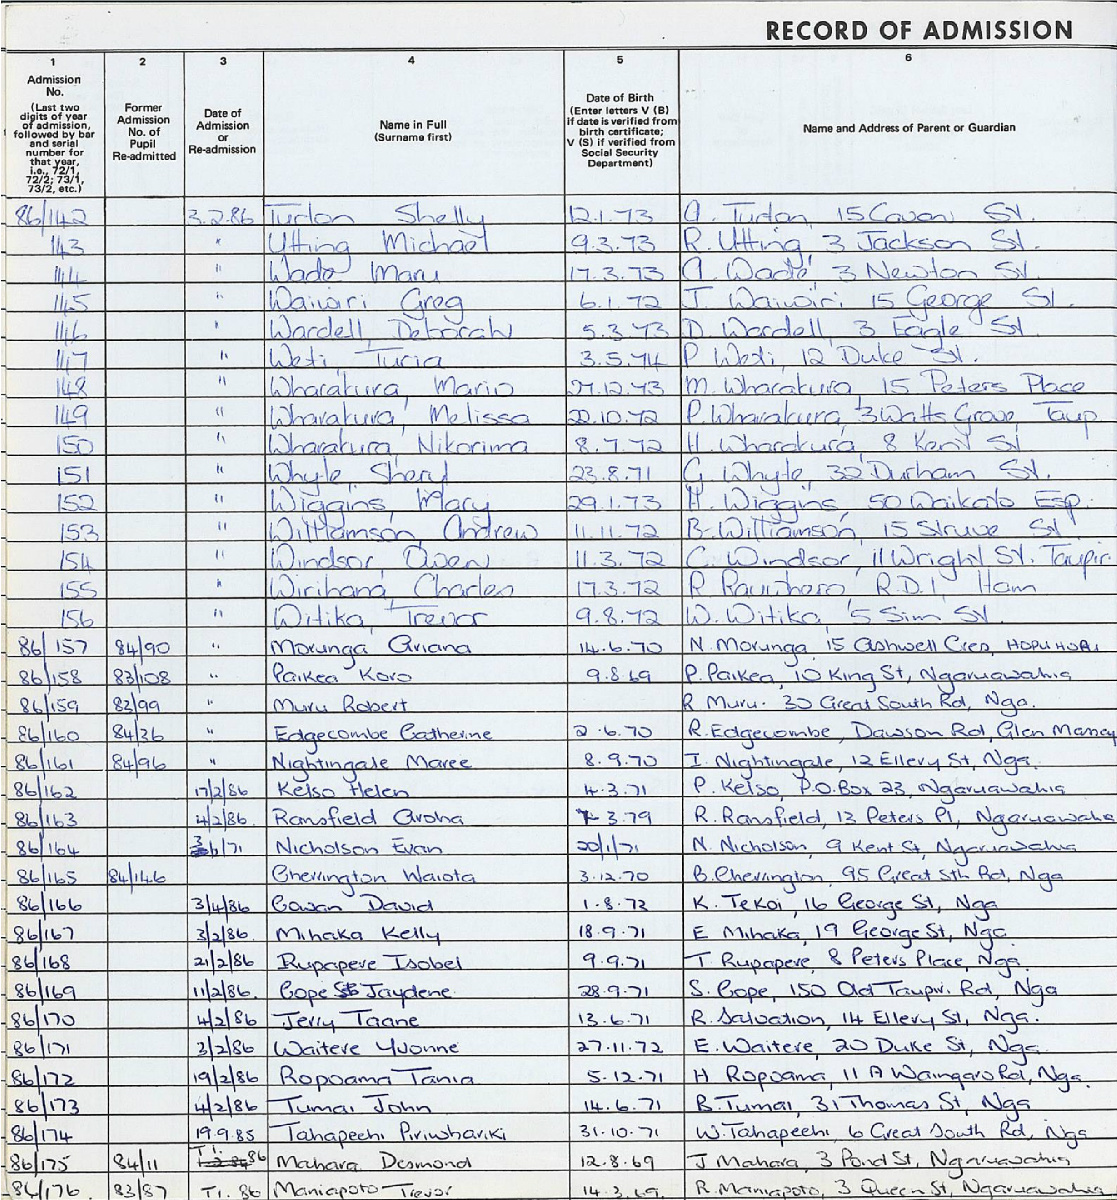 RECORD OF ADMISSION
1 2 3 4 5 6
Admission No. (Last two digits of year of admission, followed by bar and serial number for that year, i.e., 72/1, 72/2; 73/1, 73/2, etc.)
Former Admission No. of Pupil Re-admitted
Date of Admission or Re-admission
Name in Full (Surname first)
Date of Birth (Enter letters V (B) if date is verified from birth certificate; V (S) if verified from Social Security Department)
Name and Address of Parent or Guardian
86/142 3.2.86 Turton Shelly 12.1.73 A. Turton 15 St.
143 " Utting Michael 9.3.73 R. Utting 3 Jackson St.
144 " Wade Mary 17.3.73 A. Wade 3 Newton St.
145 " Waiwiri Greg 6.1.72 J. Waiwiri 15 George St.
146 " Wardell, Deborah 5.3.73 D. Wardell, 3 Eagle St.
147 " Weti, Turia 3.5.74 P Weti, 12 Duke St.
148 " Wharakura, Mario 27.12.73 M. Wharakura, 15 Peters Place
149 " Wharakura, Melissa 20.10.72 P. Wharakura, 3 Watts Grove, Taup
150 " Wharakura, Nikorima 8.7.72 H. Wharakura, 8 Kent St
151 " Whyle, Sheryl 23.8.71 G. Whyle, 32 Durham St.
152 " Wiggins, Mary 29.1.73 H. Wiggins, 50 Waikato Esp.
153 " Williamson, Andrew 11.11.72 B. Williamson, 15 Struve St
154 " Windsor, Owen 11.3.72 C. Windsor, 11 Wright St. Taupir
155 " Wirihana, Charles 17.3.72 R R.D.1, Ham
156 " Witika, Trevor 9.8.72 W. Witika, 5 Sim St.
86/157 84/90 " Morunga Ariana 14.6.70 N. Morunga 15 Ashwell Cres, HOPUHOPU
86/158 83/108 " Paikea Koro 9.8.69 P. Paikea, 10 King St, Ngaruawahia
86/159 83/99 " Muru Robert R Muru. 30 Great South Rd, Nga.
86/160 84/36 " Edgecombe Catherine 2.6.70 R. Edgecombe, Dawson Rd, Glen Massey
86/161 84/96 " Nightingale Maree 8.9.70 I. Nightingale, 12 Ellery St, Nga.
86/162 17/2/86 Kelso Helen 14.3.71 P. Kelso, P.O. Box 23, Ngaruawahia
86/163 4/2/86. Ransfield Aroha 3.79 R. Ransfield, 13 Peters Pl, Ngaruawahia
86/164 Nicholson Evan 20/1/71 N. Nicholson, 9 Kent St, Ngaruawahia
86/165 84/146 Cherrington Waiota 3.12.70 B. Cherrington, 95 Great Sth Rd, Nga
86/166 3/4/86 Cowan David 1.8.72 K. Tekoi, 16 George St, Nga
86/167 3/2/86. Mihaka Kelly 18.9.71 E Mihaka, 19 George St, Nga.
86/168 21/2/86 Rupapere Isobel 9.9.71 T. Rupapere, 8 Peters Place, Nga.
86/169 11/2/86. Cope Jaydene 28.9.71 S. Cope, 150 Old Taupiri Rd, Nga
86/170 4/2/86 Jerry Taane 13.6.71 R. Salvation, 14 Ellery St, Nga.
86/171 3/2/86 Waitere Yvonne 27.11.72 E. Waitere, 20 Duke St, Nga.
86/172 19/2/86 Ropoama Tania 5.12.71 H Ropoama, 11 A Waingaro Rd, Nga.
86/173 4/2/86 Tumai John 14.6.71 B. Tumai, 31 Thomas St, Nga
86/174 19.9.85 Tahapeehi Piriwhariki 31.10.71 W. Tahapeehi, 6 Great South Rd, Nga
86/175 84/11 T1. 86 Mahara Desmond 12.8.69 J Mahara, 3 Pond St, Ngaruawahia
86/176 83/87 T1. 86 Maniapoto Trevor 14.3.69. R. Maniapoto, 3 Queen St, Ngaruawahia